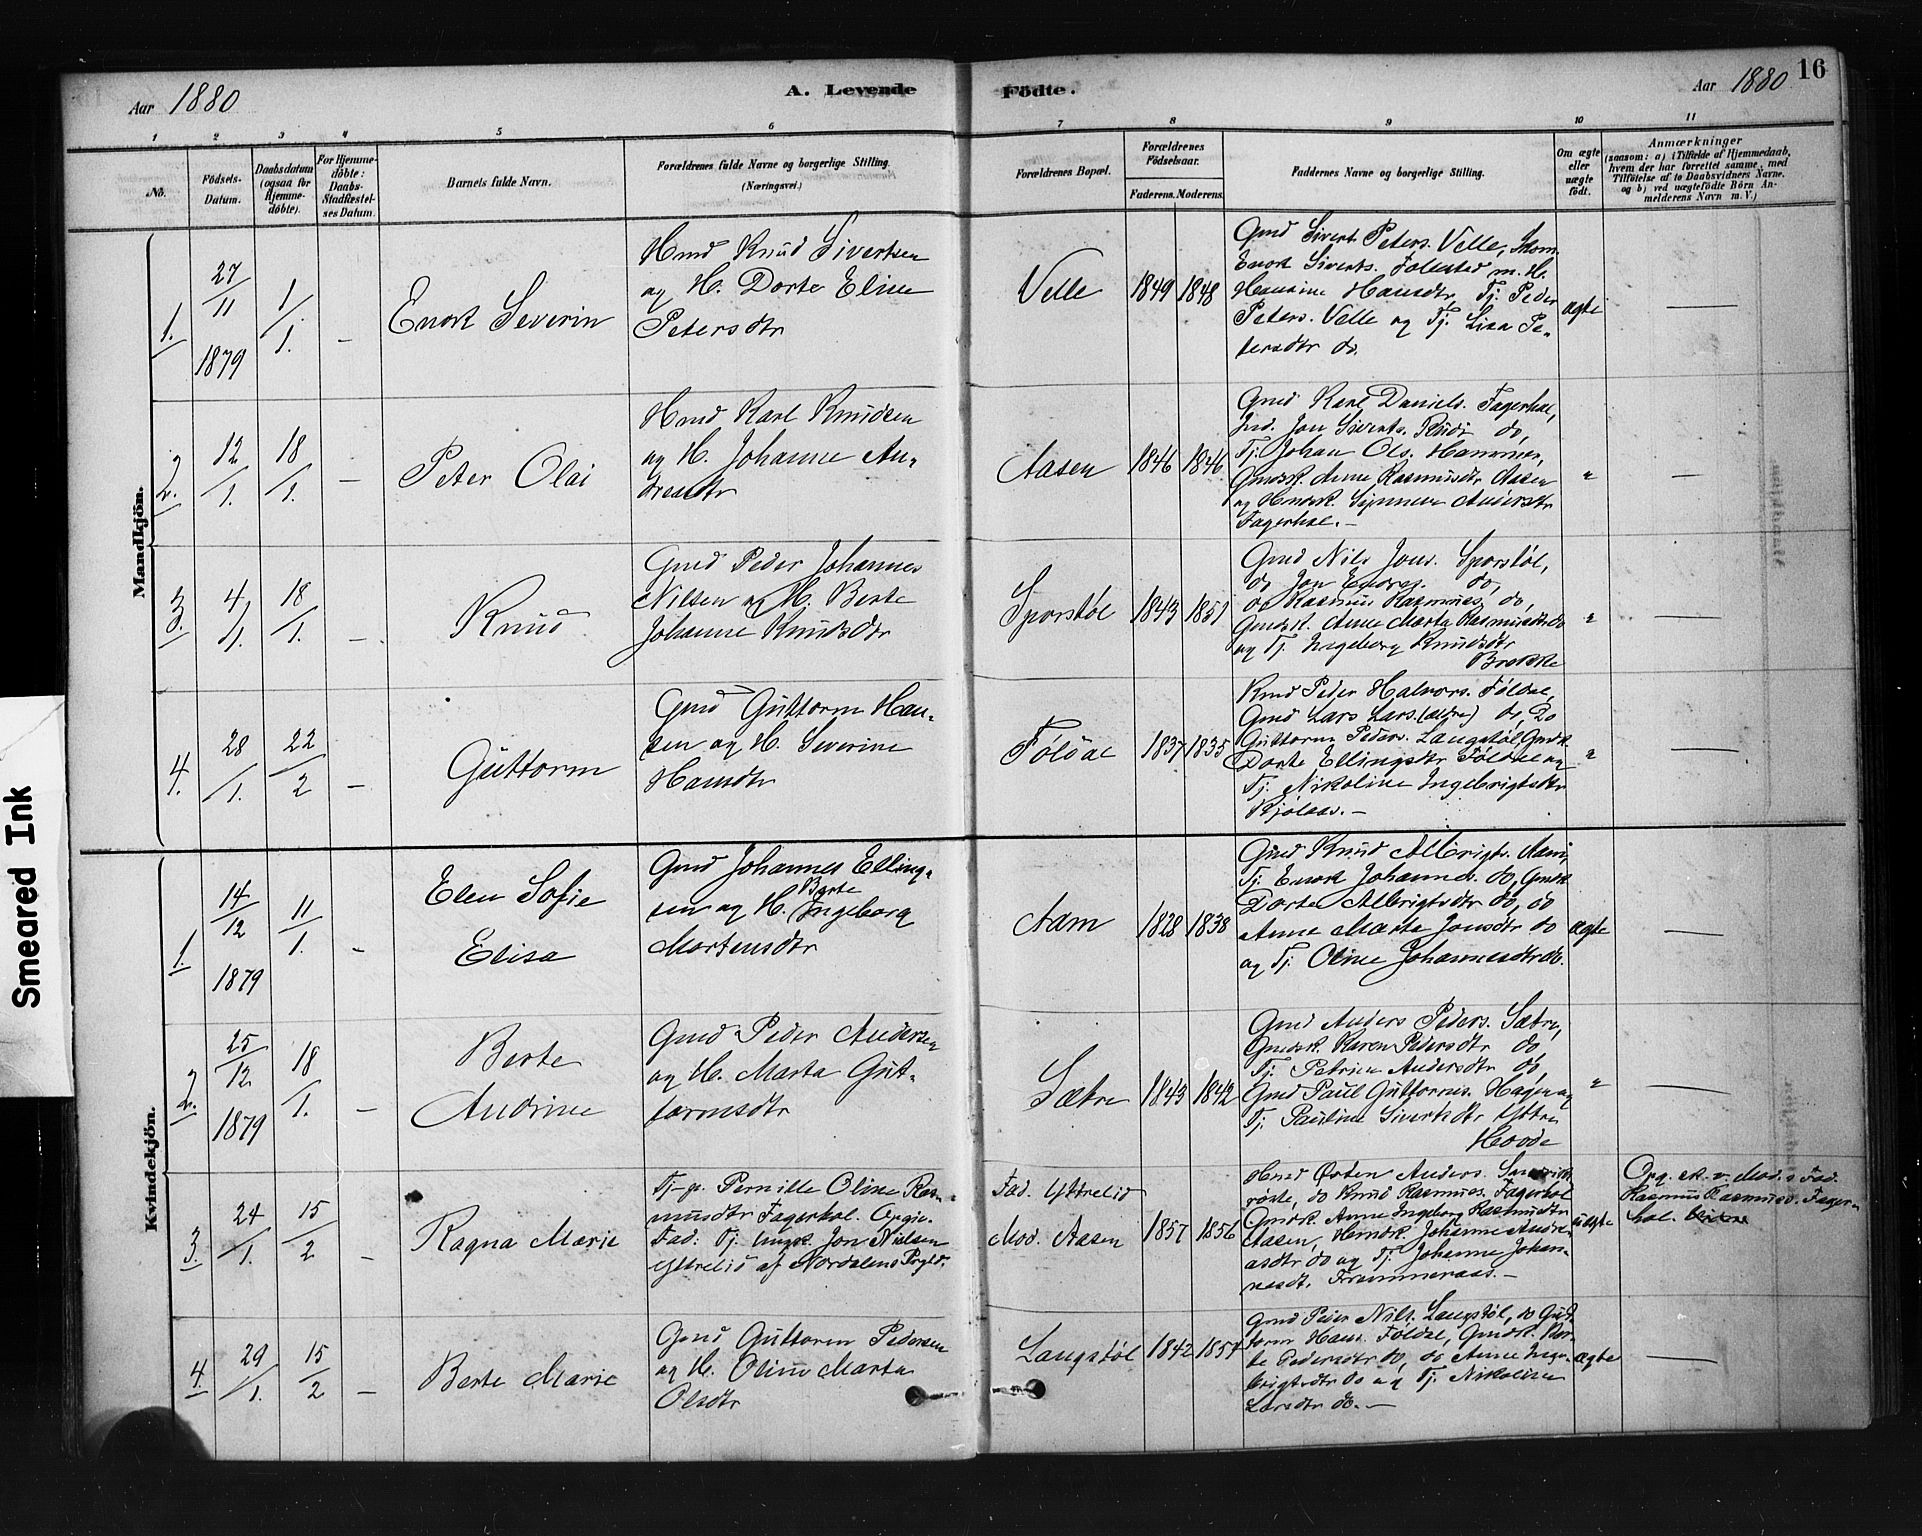 Smeared Ink
Aar 1880
A. Levende Födte.
Aar 1880
16
1 2 3 4 5 6 7 8 9 10 11
No.
Födsels-
Datum.
Daabsdatum
(ogsaa for
Hjemme-
döbte).
For Hjemme-
döbte:
Daabs-
Stadfæstel-
ses Datum.
Barnets fulde Navn.
Forældrenes fulde Navne og borgerlige Stilling.
(Næringsvei.)
Forældrenes Bopæl.
Forældrenes
Födselsaar.
Faderens. Moderens.
Faddernes Navne og borgerlige Stilling.
Om ægte
eller
uægte
født.
Anmærkninger
(saasom: a) i Tilfælde af Hjemmedaab,
hvem der har forrettet samme, med
Tilföielse af to Daabsvidners Navne.
og b) ved uægtefödte Börn An-
melderens Navn m. V.)
Mandkjön.
1. 27/11 1879 1/1. –
Enok Severin
Hmd Knud Sivertsen
og H. Dorte Eline
Petersdtr
Velle 1849 1848
Gmd Sivert Peters. Velle,
Enok Siverts. Folestad m. H.
Hansine Hansdtr, Tj. Peder
Peters. Velle og Tj. Lisa Pe-
tersdtr do.
ægte —
2. 12/1. 18/1. –
Peter Olai
Hmd Karl Knudsen
og H. Johanne An-
dreasdtr
Aasen 1846 1846
Gmd Karl Daniels. Fagerhol,
Ind. Jon Siverts. do,
Tj. Johan Ols. Hammer,
Gmdsk. Anne Rasmusdtr Aasen
og Hmdsk. Synneve Andersdtr
Fagerhol. –
" —
3. 4/1. 18/1. –
Knud
Gmd Peder Johannes
Nilsen og H. Berte
Johanne Knudsdtr
Sporstøl 1843 1851
Gmd Nils Jons. Sporstøl,
do Jon Endres. do,
do Rasmus Rasmuss. do,
Gmdsk. Anne Marta Rasmusdtr do
og Tj. Ingeborg Knudsdtr
Brekke
" —
4. 28/1. 22/2 –
Guttorm
Gmd Guttorm Han-
sen og H. Severine
Hansdtr
Føldal 1837 1835
Peder Halvors. Føldal,
Gmd Lars Lars. (ældre) do, Do
Guttorm Peders. Langstøl, Gmdk.
Dorte Ellingsdtr Føldal og
Tj. Nikoline Ingebrigtsdtr
Kjølaas. –
" —
Kvindekjön.
1. 14/12 1879 11/1. –
Elen Sofie
Elisa
Gmd Johannes Elling-
sen og H. Berte Ingeborg
Mortensdtr
Aam 1828 1838
Gmd Knud Albrigts. Aam,
Tj. Enok Johannes. do, Gmdk
Dorte Albrigtsdtr do, do
Anne Marte Jonsdtr do
og Tj. Oline Johannesdtr do.
ægte —
2. 25/12 1879 18/1. –
Berte
Andrine
Gmd Peder Andersen
og H. Marta Gut-
tormsdtr
Sætre 1843 1842
Gmd Anders Peders. Sætre,
Gmdsk. Karen Pedersdtr do,
Tj. Petrine Andersdtr do,
Gmd Paul Guttorms. Hagen og
Tj. Pauline Sivertsdtr Ytre
Hovde
" —
3. 24/1. 15/2 –
Ragna Marie
Tj-p. Pernille Oline Ras-
musdtr Fagerhol. Opgiv.
Fad: Tj. Ungk. Jon Nielsen
Ytrelid af Nordalens Prgld.
Fad. Yttrelid
Mod. Aasen 1857 1856
Hmd Østen Anders.
do Knud Rasmuss. Fagerhol
Gmdsk. Anne Ingeborg Rasmusdtr
Aasen, Hmdsk. Johanne Andre-
asdtr do og Tj. Johanne Johan-
nesdt. Frammeraas. –
uægte
Opg. Mod.s Fad.
Rasmus Rasmuss. Fager-
hol.
4. 29/1. 15/2 –
Berte Marie
Gmd Guttorm Pedersen
og H. Oline Marta
Olsdtr
Langstøl 1842 1857
Gmd Peder Nils. Langstøl, do Gut-
torm Hans. Føldal, Gmdsk.
Pedersdtr do, do Anne Inge-
brigtsdtr do og Tj. Nikoline
Larsdtr do. –
ægte —